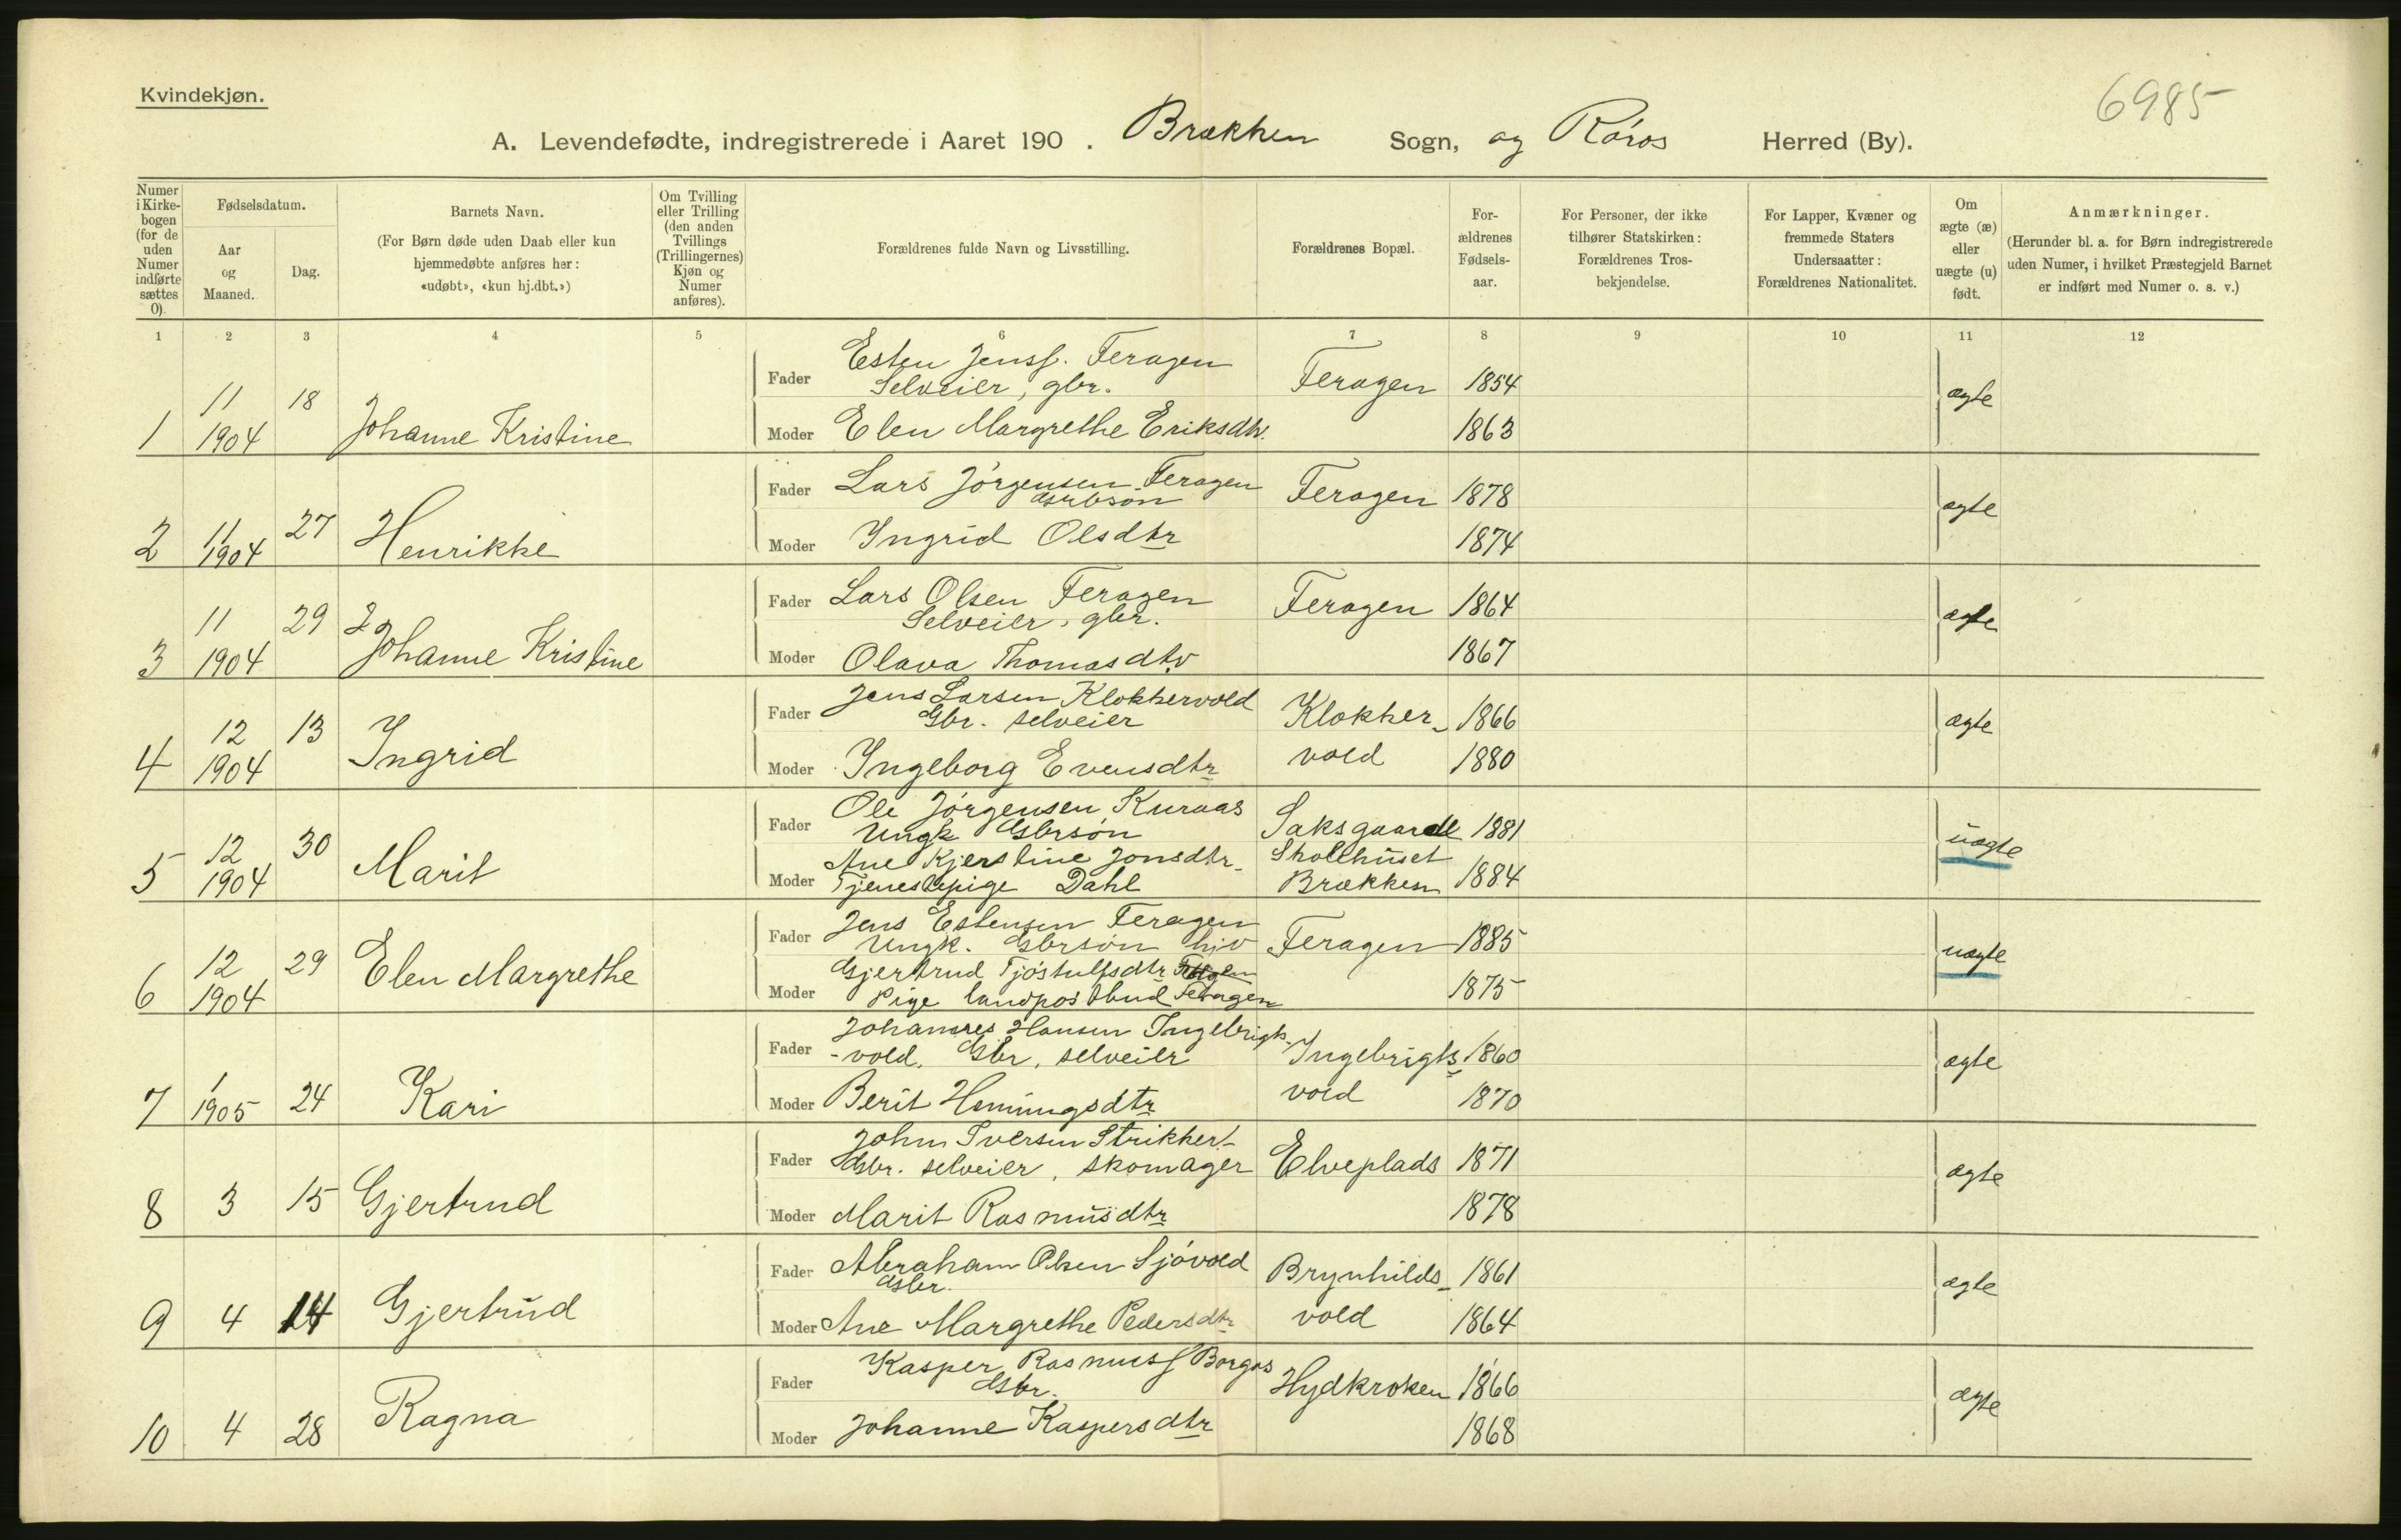 Kvindekjøn.
6985
A. Levendefødte, indregistrerede i Aaret 190 . Brækken Sogn, og Røros Herred (By).
Numer i Kirkebogen (for de uden Numer indførte sættes 0).
Fødselsdatum.
Aar og Maaned.
Dag.
Barnets Navn.
(For Børn døde uden Daab eller kun hjemmedøbte anføres her: «udøbt», «kun hj.dbt.»)
Om Tvilling eller Trilling (den anden Tvillings (Trillingernes) Kjøn og Numer anføres).
Forældrenes fulde Navn og Livsstilling.
Forældrenes Bopæl.
For-ældrenes Fødsels-aar.
For Personer, der ikke tilhører Statskirken: Forældrenes Tros-bekjendelse.
For Lapper, Kvæner og fremmede Staters Undersaatter: Forældrenes Nationalitet.
Om ægte (æ) eller uægte (u) født.
Anmærkninger.
(Herunder bl. a. for Børn indregistrerede uden Numer, i hvilket Præstegjeld Barnet er indført med Numer o. s. v.)
1 2 3 4 5 6 7 8 9 10 11 12
Fader Esten Jensf. Feragen
Selveier, gbr. Feragen 1854
1 11 1904 18 Johanne Kristine ægte
Moder Elen Margrethe Eriksdtr. 1863
Fader Lars Jörgensen Feragen Feragen 1878
Gbrsön
2 11 1904 27 Henrikke ægte
Moder Ingrid Olsdtr 1874
Fader Lars Olsen Feragen Feragen 1864
Selveier, gbr.
3 11 1904 29 Johanne Kristine ægte
Moder Olava Thomasdtr 1867
Fader Jens Larsen Klokkervold
Gbr. selveier Klokker- 1866
4 12 1904 13 Ingrid ægte
Moder Ingeborg Evensdtr vold 1880
Fader Ole Jörgensen Kuraas
Ungk Gbrsön Saksgaard 1881
5 12 1904 30 Marit uægte
Moder Ane Kjerstine Jonsdtr. Skolehuset
Tjenestepige Dahl Brækken 1884
Fader Jens Estensen Feragen
Ungk. Gbrsön Feragen 1885
6 12 1904 29 Elen Margrethe uægte
Moder Gjertrud Tjöstulfsdtr
Pige landpostbud Feragen 1875
Fader Johannes Hansen Ingebrigts-
-vold, Gbr, selveier Ingebrigts- 1860
7 1 1905 24 Kari ægte
Moder Berit Hemingsdtr vold 1870
Fader John Iversen Strikkert
Gbr. selveier, skomager Elveplads 1871
8 3 15 Gjertrud ægte
Moder Marit Rasmusdtr 1878
Fader Abraham Olsen Sjövold Brynhilds- 1861
Gbr.
9 4 14 Gjertrud ægte
Moder Ane Margrethe Pedersdtr vold 1864
Fader Kasper Rasmusf Borgos
Gbr. Hydkroken 1866
10 4 28 Ragna ægte
Moder Johanne Kaspersdtr 1868